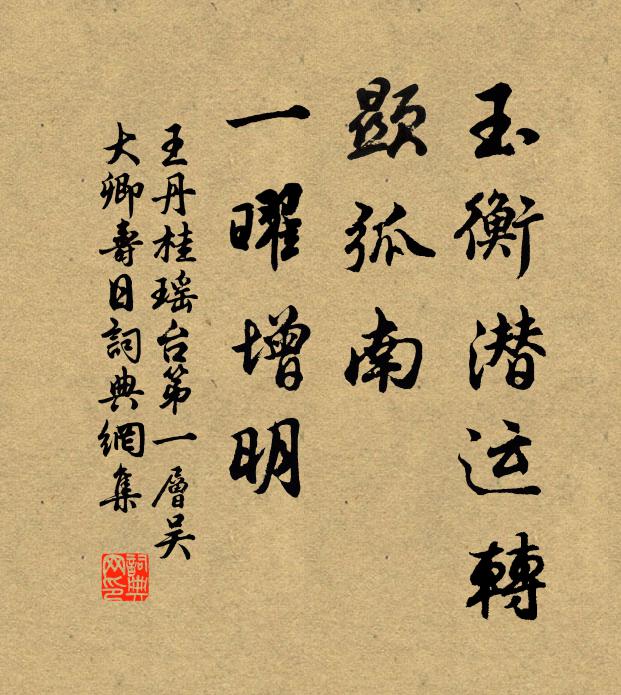 玉衡潜运轉
顯孤南
一曜增明
王丹桂瑶台第一層吴
大卿壽日詞典網集
詞典
网印